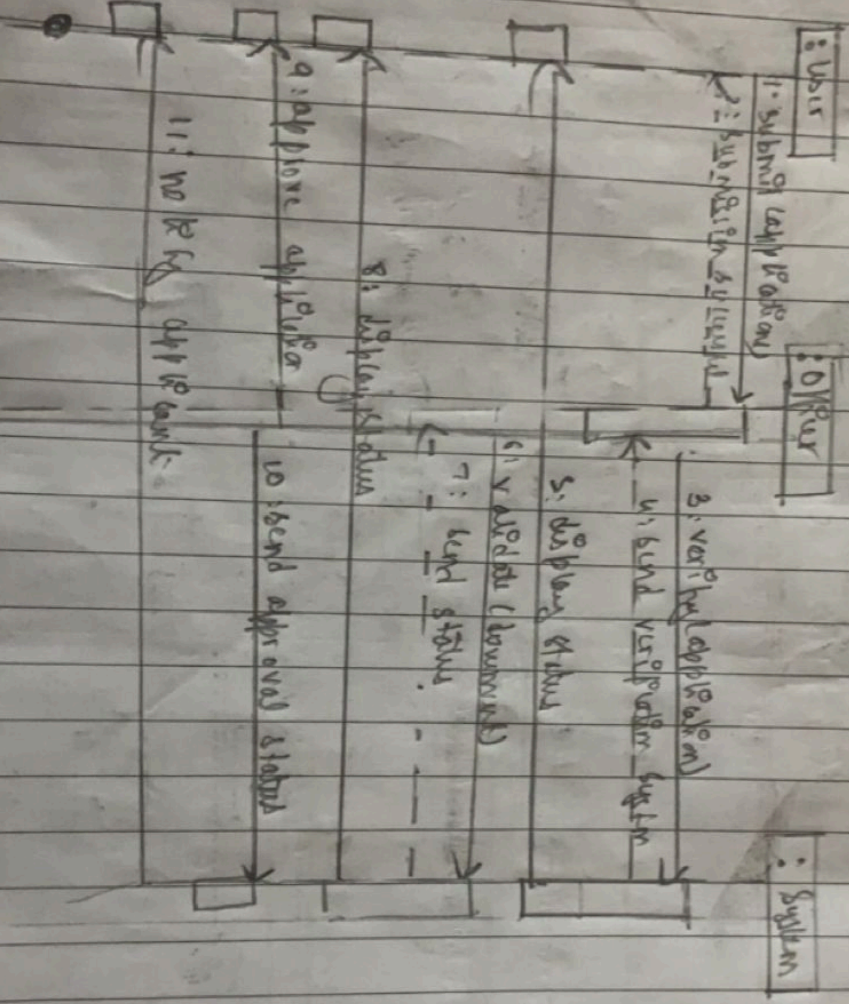 : User
: Officer
: System
1: submit (application)
2: submission successful
3: verify (application)
4: send verification system
5: display status
6: validate (document)
7: send status.
8: display status
9: approve application
10: send approval status
11: notify applicant.